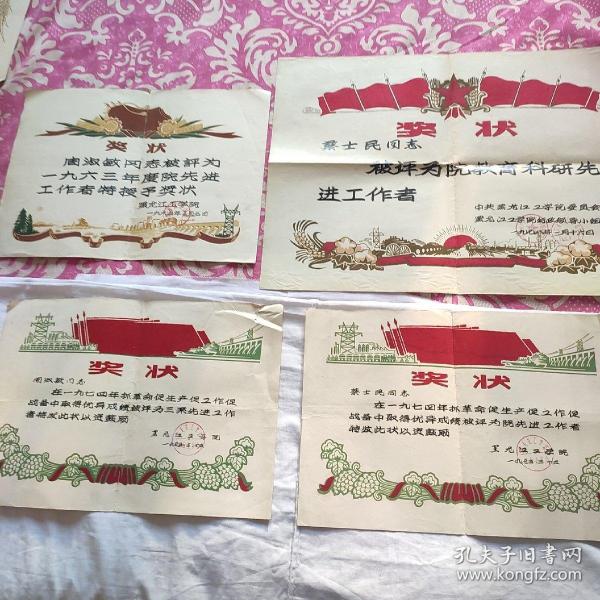 奖状
周淑敏同志被评为
一九六三年度院先进
工作者特授予奖状
黑龙江工学院
奖状
蔡士民同志
被评为院教育科研先
进工作者
中共黑龙江工学院委员会
奖状
周淑敏同志
在一九七四年抓革命促生产促工作促
战备中取得优异成绩被评为三系先进工作
者特发此状以资鼓励
黑龙江工学院
奖状
蔡士民同志
在一九七四年抓革命促生产促工作促
战备中取得优异成绩被评为院先进工作者
特发此状以资鼓励
黑龙江工学院
孔夫子旧书网
www.kongfz.com